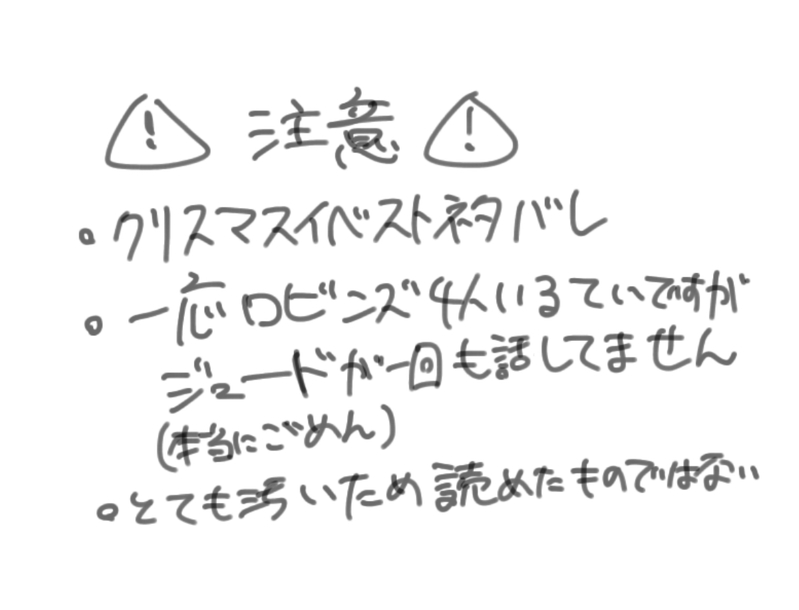 ⚠ 注意 ⚠
・クリスマスイベストネタバレ
・一応ロビンズ4人いるていですが
ジュードが一回も話してません
(本当にごめん)
・とても汚いため読めたものではない